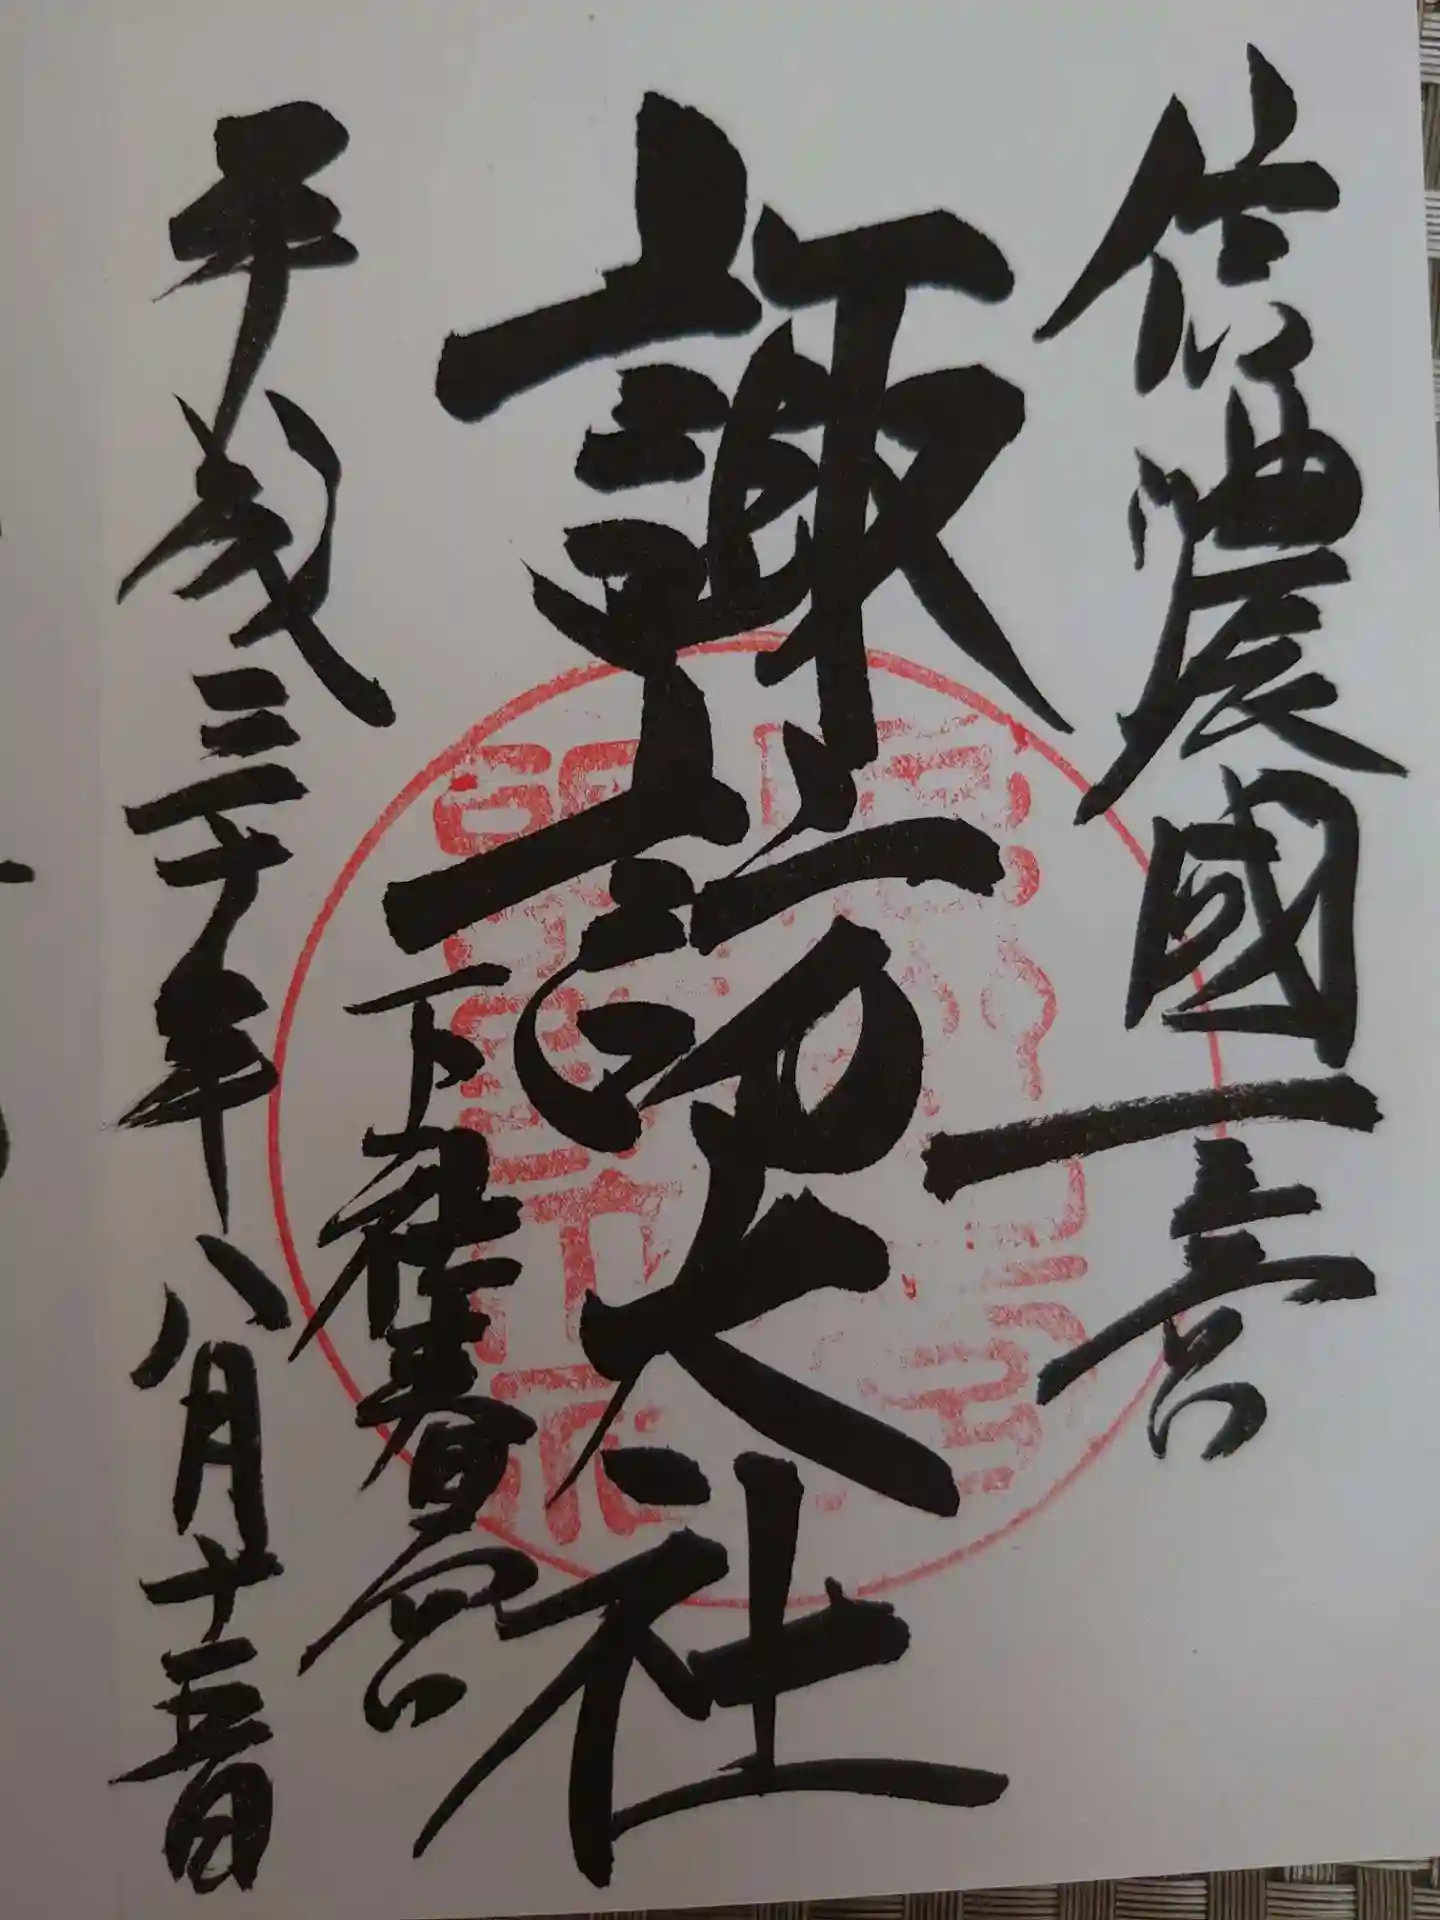 信濃國一宮
諏訪大社
下社春宮
平成三十年八月十五日